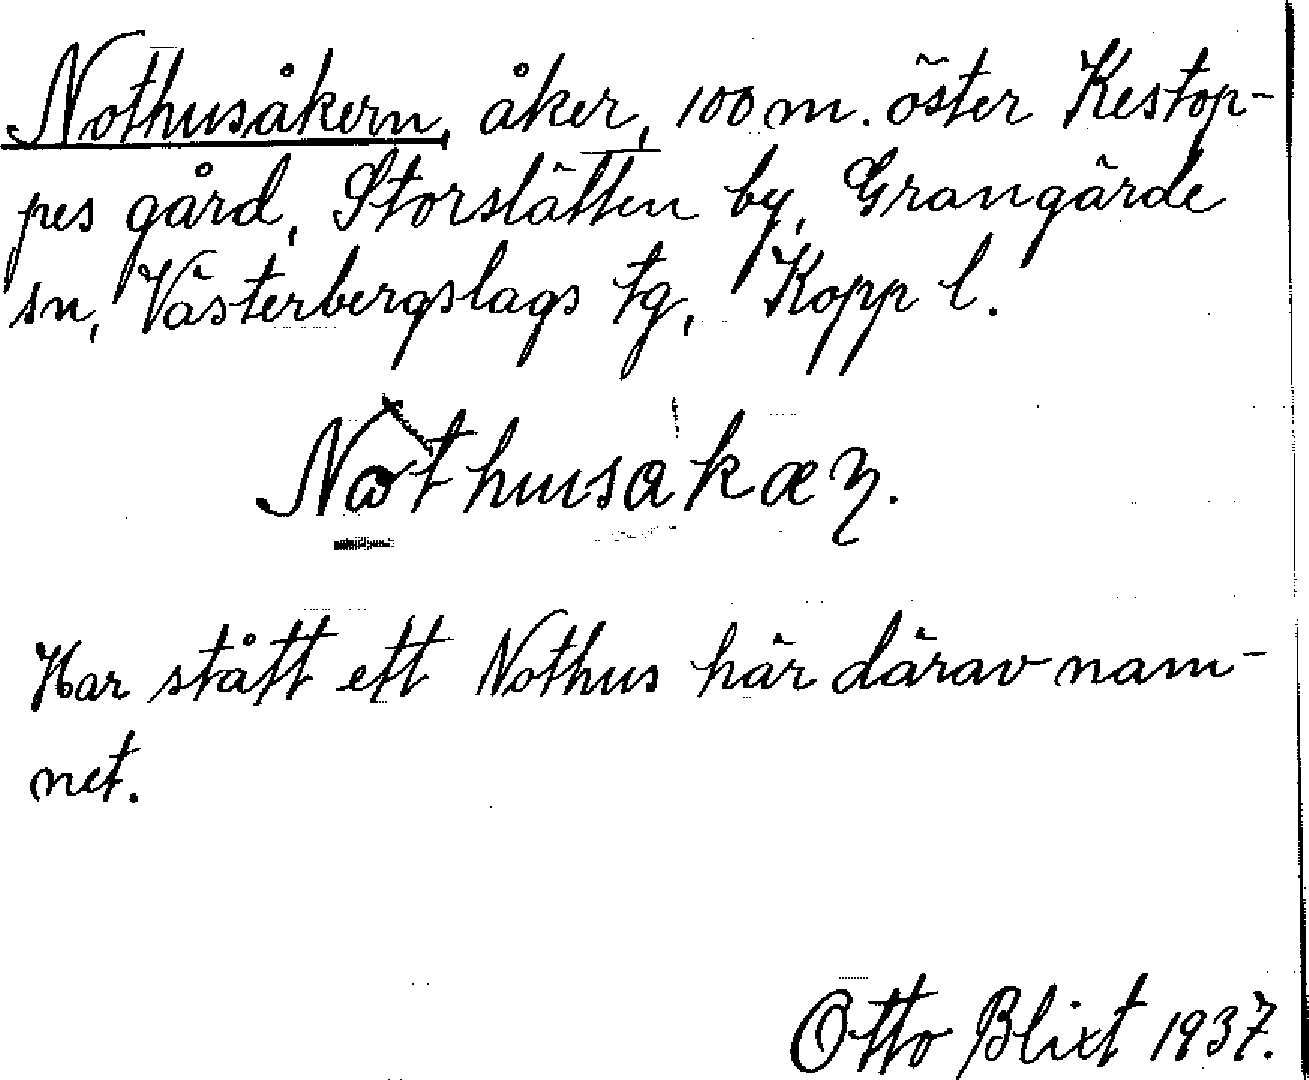 Nothusåkern, åker, 100 m. öster Kestop-
pes gård, Storslätten by, Grangärde
sn, Västerbergslags tg, Kopp l.
Nothusakæŋ.
Har stått ett Nothus här därav nam-
net.
Otto Blixt 1937.